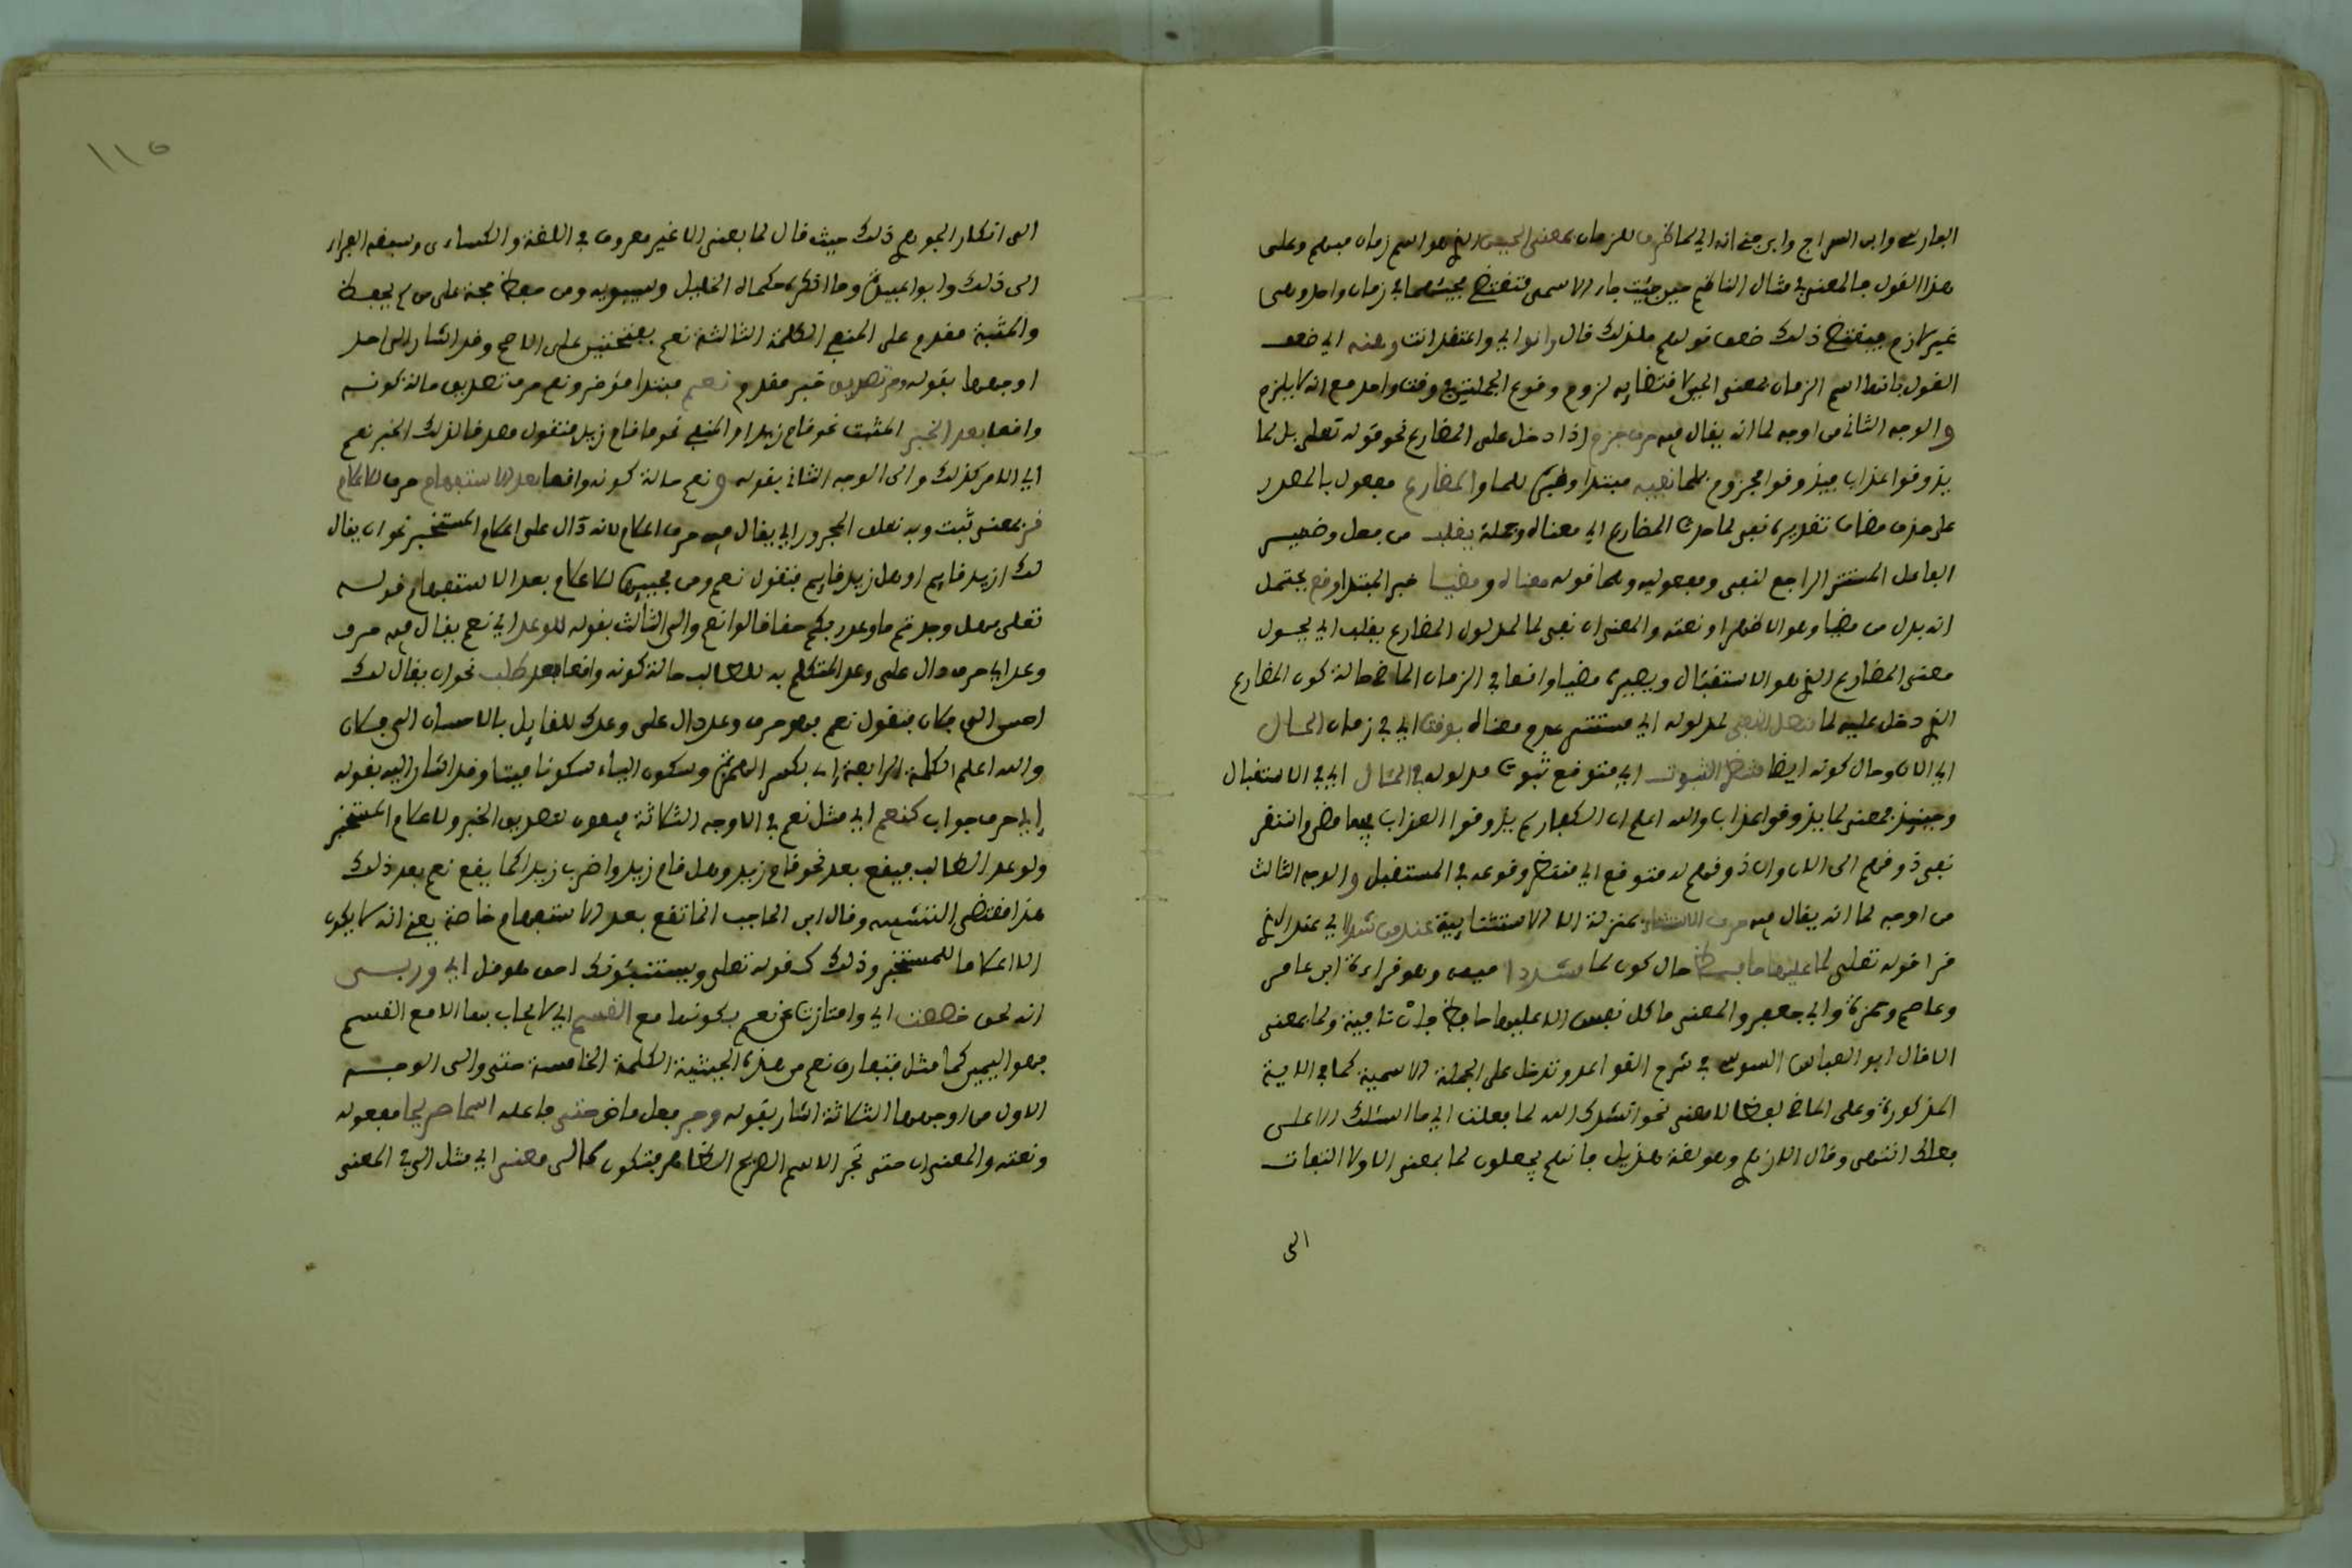 الفارسي وابن السراج وابن جني انه اي لما ظرف للزمان بمعنى الحين الذي هو اسم زمان مبهم وعلى
هذا القول فالمعنى في مثال الناظم حين جئت جاء الاسمى فتقتضي مجيئهما في زمان واحد وهي
غير لازم فيقتضي ذلك ضعف قولهم فلذلك قال وانوا اي واعتقد انت وهنه اي ضعف
القول بانها اسم الزمان بمعنى الحين لاقتضايه لزوم وقوع الجملتين في وقت واحد مع انه لا يلزم
والوجه الثاني من اوجه لما انه يقال فيه حرف جزم اذا دخل على المضارع نحو قوله تعلى بل لما
يذوقوا عذاب فيذوقوا مجزوم بلما نفيه مبتدا وضميره للما والمضارع مفعول بالمصدر
على حذف مضاف تقديره نفي لما حدث المضارع اي معناه وجملة يقلب من فعل وضمير
الفاعل المستتر الراجع لنفي ومفعوليه وهما قوله معناه ومضيا خبر المبتدا وقع يحتمل
انه بدل من مضيا وهو الاظهر او نعته والمعنى ان نفي لما لمدلول المضارع يقلب اي يحول
معنى المضارع الذي هو الاستقبال ويصيره مضيا واقعا في الزمان الماضي حالة كون المضارع
الذي دخل عليه لما متصل النفي لمدلوله اي مستمر عدم معناه بوقت اي في زمان الحال
اي الان وحال كونه ايضا منتظر الثبوت اي متوقع ثبوت مدلوله في المئال اي في الاستقبال
وحينئذ فمعنى لما يذوقوا عذاب والله اعلم ان الكفار لم يذوقوا العذاب فيما مضى وانتفى
نفي ذوقهم الى الان وان ذوقهم له متوقع اي منتظر وقوعه في المستقبل والوجه الثالث
من اوجه لما انه يقال فيه حرف الاستثناء بمنزلة الا الاستثنايية عند من شددا اي عند الذي
قرا قوله تعلى لما عليها حافظ حال كون لما مشددا ميمه وهو قراءة ابن عامر
وعاصم وحمزة وابي جعفر والمعنى ما كل نفس الا عليها حافظ فان نافية ولما بمعنى
الا قال ابو العباس السوسي في شرح القواعد وتدخل على الجملة الاسمية كما في الاية
المذكورة وعلى الماضي لفظا لا معنى نحو انشدك الله لما فعلت اي ما اسئلك الا على
فعلك انتهى وقال الازهري وهو لغة هذيل فانهم يجعلون لما بمعنى الا ولا التفات
الى
١١٥
الى انكار الجوهري ذلك حيث قال لما بمعنى الا غير معروف في اللغة والكساءى وسبقه الفراء
الى ذلك وابو عبيدة وما انكره حكاه الخليل وسيبويه ومن حفظ حجة على من لم يحفظ
والمثبت مقدم على المنفي الكلمة الثالثة نعم بفتحتين على الاصح وقد اشار الى احد
اوجهها بقوله وحرف تصديق خبر مقدم نعم مبتدا مؤخر ونعم حرف تصديق حالة كونه
واقعا بعد الخبر المثبت نحو قام زيد او المنفي نحو ما قام زيد فتقول مصدقا لذلك الخبر نعم
اي الامر كذلك والى الوجه الثاني بقوله ونعم حالة كونه واقعا بعد الاستفهام حرف للاعلام
قر بمعنى ثبت وبه تعلق المجرور اي يقال فيه حرف اعلام لانه دال على اعلام المستخبر نحو ان يقال
لك ازيد قايم او هل زيد قايم فتقول نعم ومن مجييها للاعلام بعد الاستفهام قوله
تعلى فهل وجدتم ما وعد ربكم حقا قالوا نعم والى الثالث بقوله للوعد اي نعم يقال فيه حرف
وعد اي حرف دال على وعد المتكلم به للطالب حالة كونه واقعا بعد طلب نحو ان يقال لك
احسن الى فلان فتقول نعم فهو حرف وعد دال على وعدك للقايل بالاحسان الى فلان
والله اعلم الكلمة الرابعة اي بكسر الهمزة وسكون الياء سكونا ميتا وقد اشار اليه بقوله
اي حرف جواب كنعم اي مثل نعم في الاوجه الثلاثة فيكون لتصديق الخبر وللاعلام المستخبر
ولوعد الطالب فيقع بعد نحو قام زيد وهل قام زيد واضرب زيدا كما يقع نعم بعد ذلك
هذا مقتضى التشبيه وقال ابن الحاجب انما تقع بعد الاستفهام خاصة يعني انه لا يكون
الا اعلاما للمستخبر وذلك كقوله تعلى ويستنبئونك احق هو قل اي وربي
انه لحق خصصت اي وامتازت عن نعم بكونها مع القسم اي لا يجاب بها الا مع القسم
فهو اليمين كما مثل فتفارق نعم من هذه الحيثية الكلمة الخامسة حتى والى الوجه
الاول من اوجهها الثلاثة اشار بقوله وجر فعل ماض حتى فاعله اسما صريحا مفعوله
ونعته والمعنى ان حتى تجر الاسم الصريح الظاهر فتكون كالى معنى اي مثل الى في المعنى